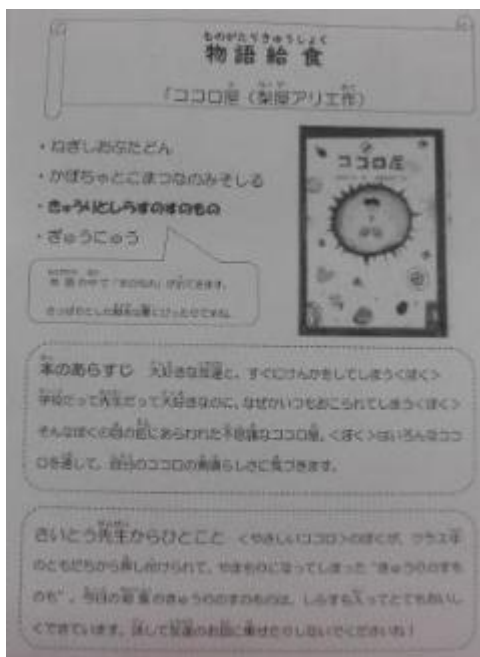 ものがたりきゅうしょく
物語給食
「ココロ屋（梨屋アリエ作）
・ねぎしおぶたどん
・かぼちゃとこまつなのみそしる
・きゅうりとしらすのすのもの
・ぎゅうにゅう
ココロ屋
物語の中で「すのもの」が出てきます。
さっぱりとした 夏にぴったりですね。
本のあらすじ 大好きな友達と、すぐにけんかをしてしまう<ぼく>
学校だって先生だって大好きなのに、なぜかいつもおこられてしまう<ぼく>
そんなぼくの目の前にあらわれた不思議なココロ屋。<ぼく>はいろんなココ
ロを通して、自分のココロの素晴らしさに気づきます。
さいとう先生からひとこと <やさしいココロ>のぼくが、クラス
のともだちから押し付けられて、やまもりになってしまった“きゅうりのすも
のも”。今日の給食のきゅうりのすのものは、しらすも入ってとてもおいし
くできています。決して友達のお皿に乗せたりしないでくださいね！